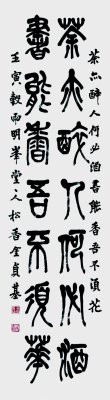 茶亦醉人何必酒書能香吾不須花
茶亦醉人何必酒
書能香吾不須華
壬寅穀雨明峯堂人松香金貞基